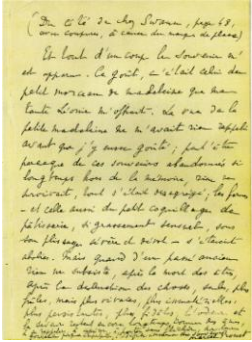 (Du côté de chez Swann, page 48,
avec coupures, à cause du manque de place)
Et tout d'un coup le souvenir m'
est apparu. Ce goût, c'était celui du
petit morceau de madeleine que ma
tante Léonie m'offrait. La vue de la
petite madeleine ne m'avait rien rappelé
avant que j'y eusse goûté ; peut-être
parce que de ces souvenirs abandonnés si
longtemps hors de la mémoire, rien ne
survivait, tout s'était désagrégé ; les formes
- et celle aussi du petit coquillage de
pâtisserie, si grassement sensuel, sous
son plissage sévère et dévot - s'étaient
abolies. Mais quand d'un passé ancien
rien ne subsiste, après la mort des êtres,
après la destruction des choses, seules, plus
frêles, mais plus vivaces, plus immatérielles,
plus persistantes, plus fidèles, l'odeur et
la saveur restent encore longtemps comme des âmes
Proust